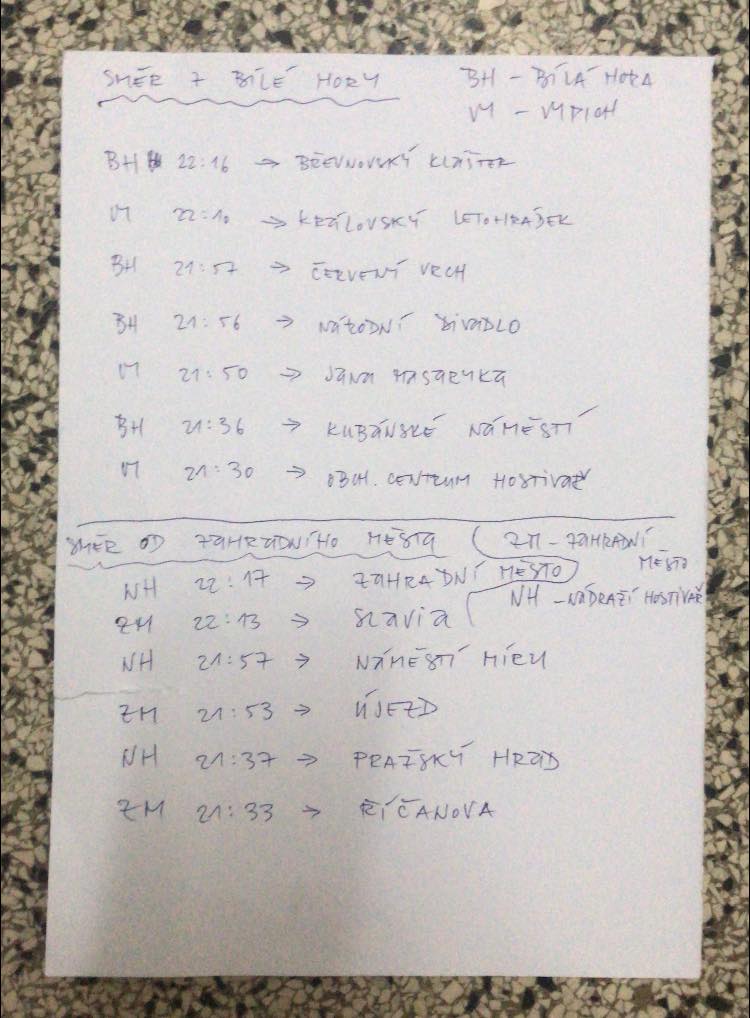 SMĚR Z BÍLÉ HORY
BH - BÍLÁ HORA
VM - VYPICH
BH 22:16 → BŘEVNOVSKÝ KLÁŠTER
VM 22:10 → KRÁLOVSKÝ LETOHRÁDEK
BH 21:57 → ČERVENÝ VRCH
BH 21:56 → NÁRODNÍ DIVADLO
VM 21:50 → JANA MASARYKA
BH 21:36 → KUBÁNSKÉ NÁMĚSTÍ
VM 21:30 → OBCH. CENTRUM HOSTIVAŘ
SMĚR OD ZAHRADNÍHO MĚSTA
ZM - ZAHRADNÍ
MĚSTO
NH - NÁDRAŽÍ HOSTIVAŘ
NH 22:17 → ZAHRADNÍ MĚSTO
ZM 22:13 → SLAVIA
NH 21:57 → NÁMĚSTÍ MÍRU
ZM 21:53 → ÚJEZD
NH 21:37 → PRAŽSKÝ HRAD
ZM 21:33 → ŘÍČANOVA